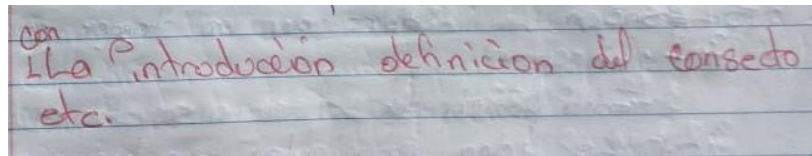 con
La introducción definicion del consecto
etc.